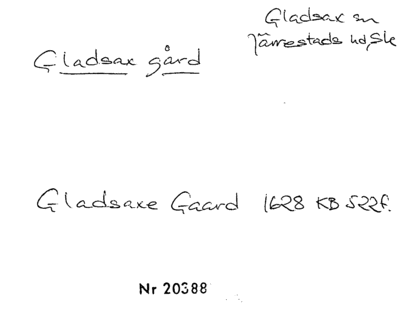 Gladsax sn
Järrestads hd, Sk
Gladsax gård
Gladsaxe Gaard 1628 KB 522f.
Nr 20388